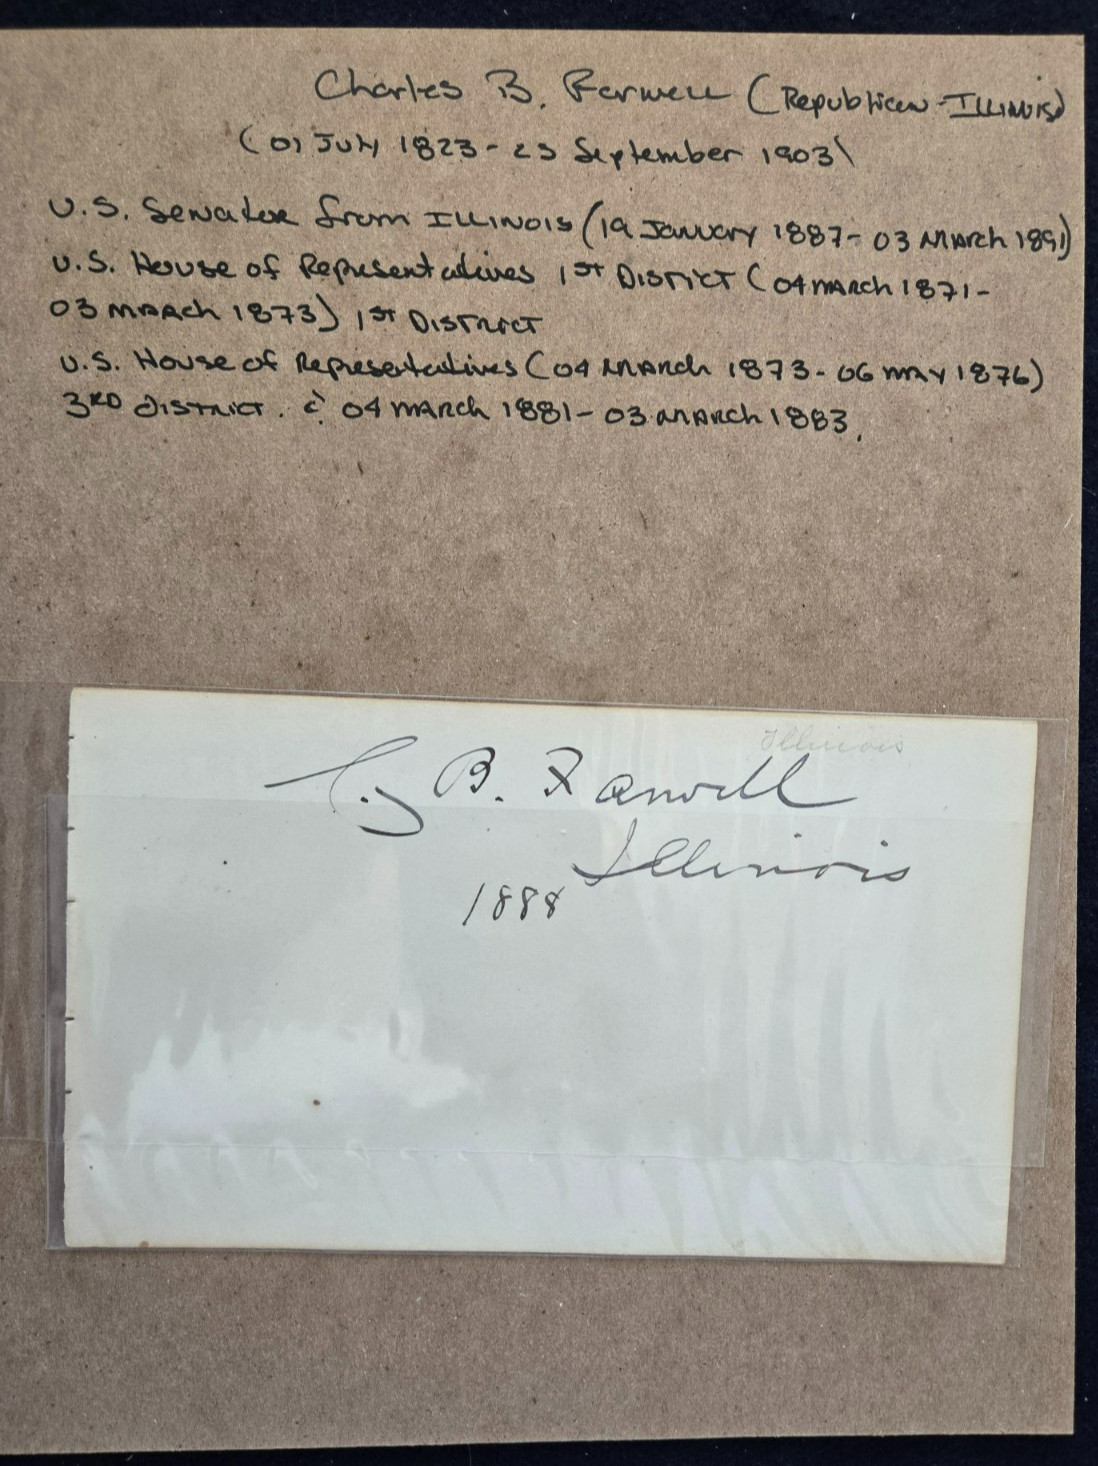 Charles B. Farwell (Republican-Illinois)
(01 July 1823 - 23 September 1903)
U.S. Senator from Illinois (19 January 1887 - 03 March 1891)
U.S. House of Representatives 1st District (04 March 1871 -
03 March 1873) 1st District
U.S. House of Representatives (04 March 1873 - 06 May 1876)
3rd District. & 04 March 1881 - 03 March 1883.
Illinois
C. B. Farwell
Illinois
1888